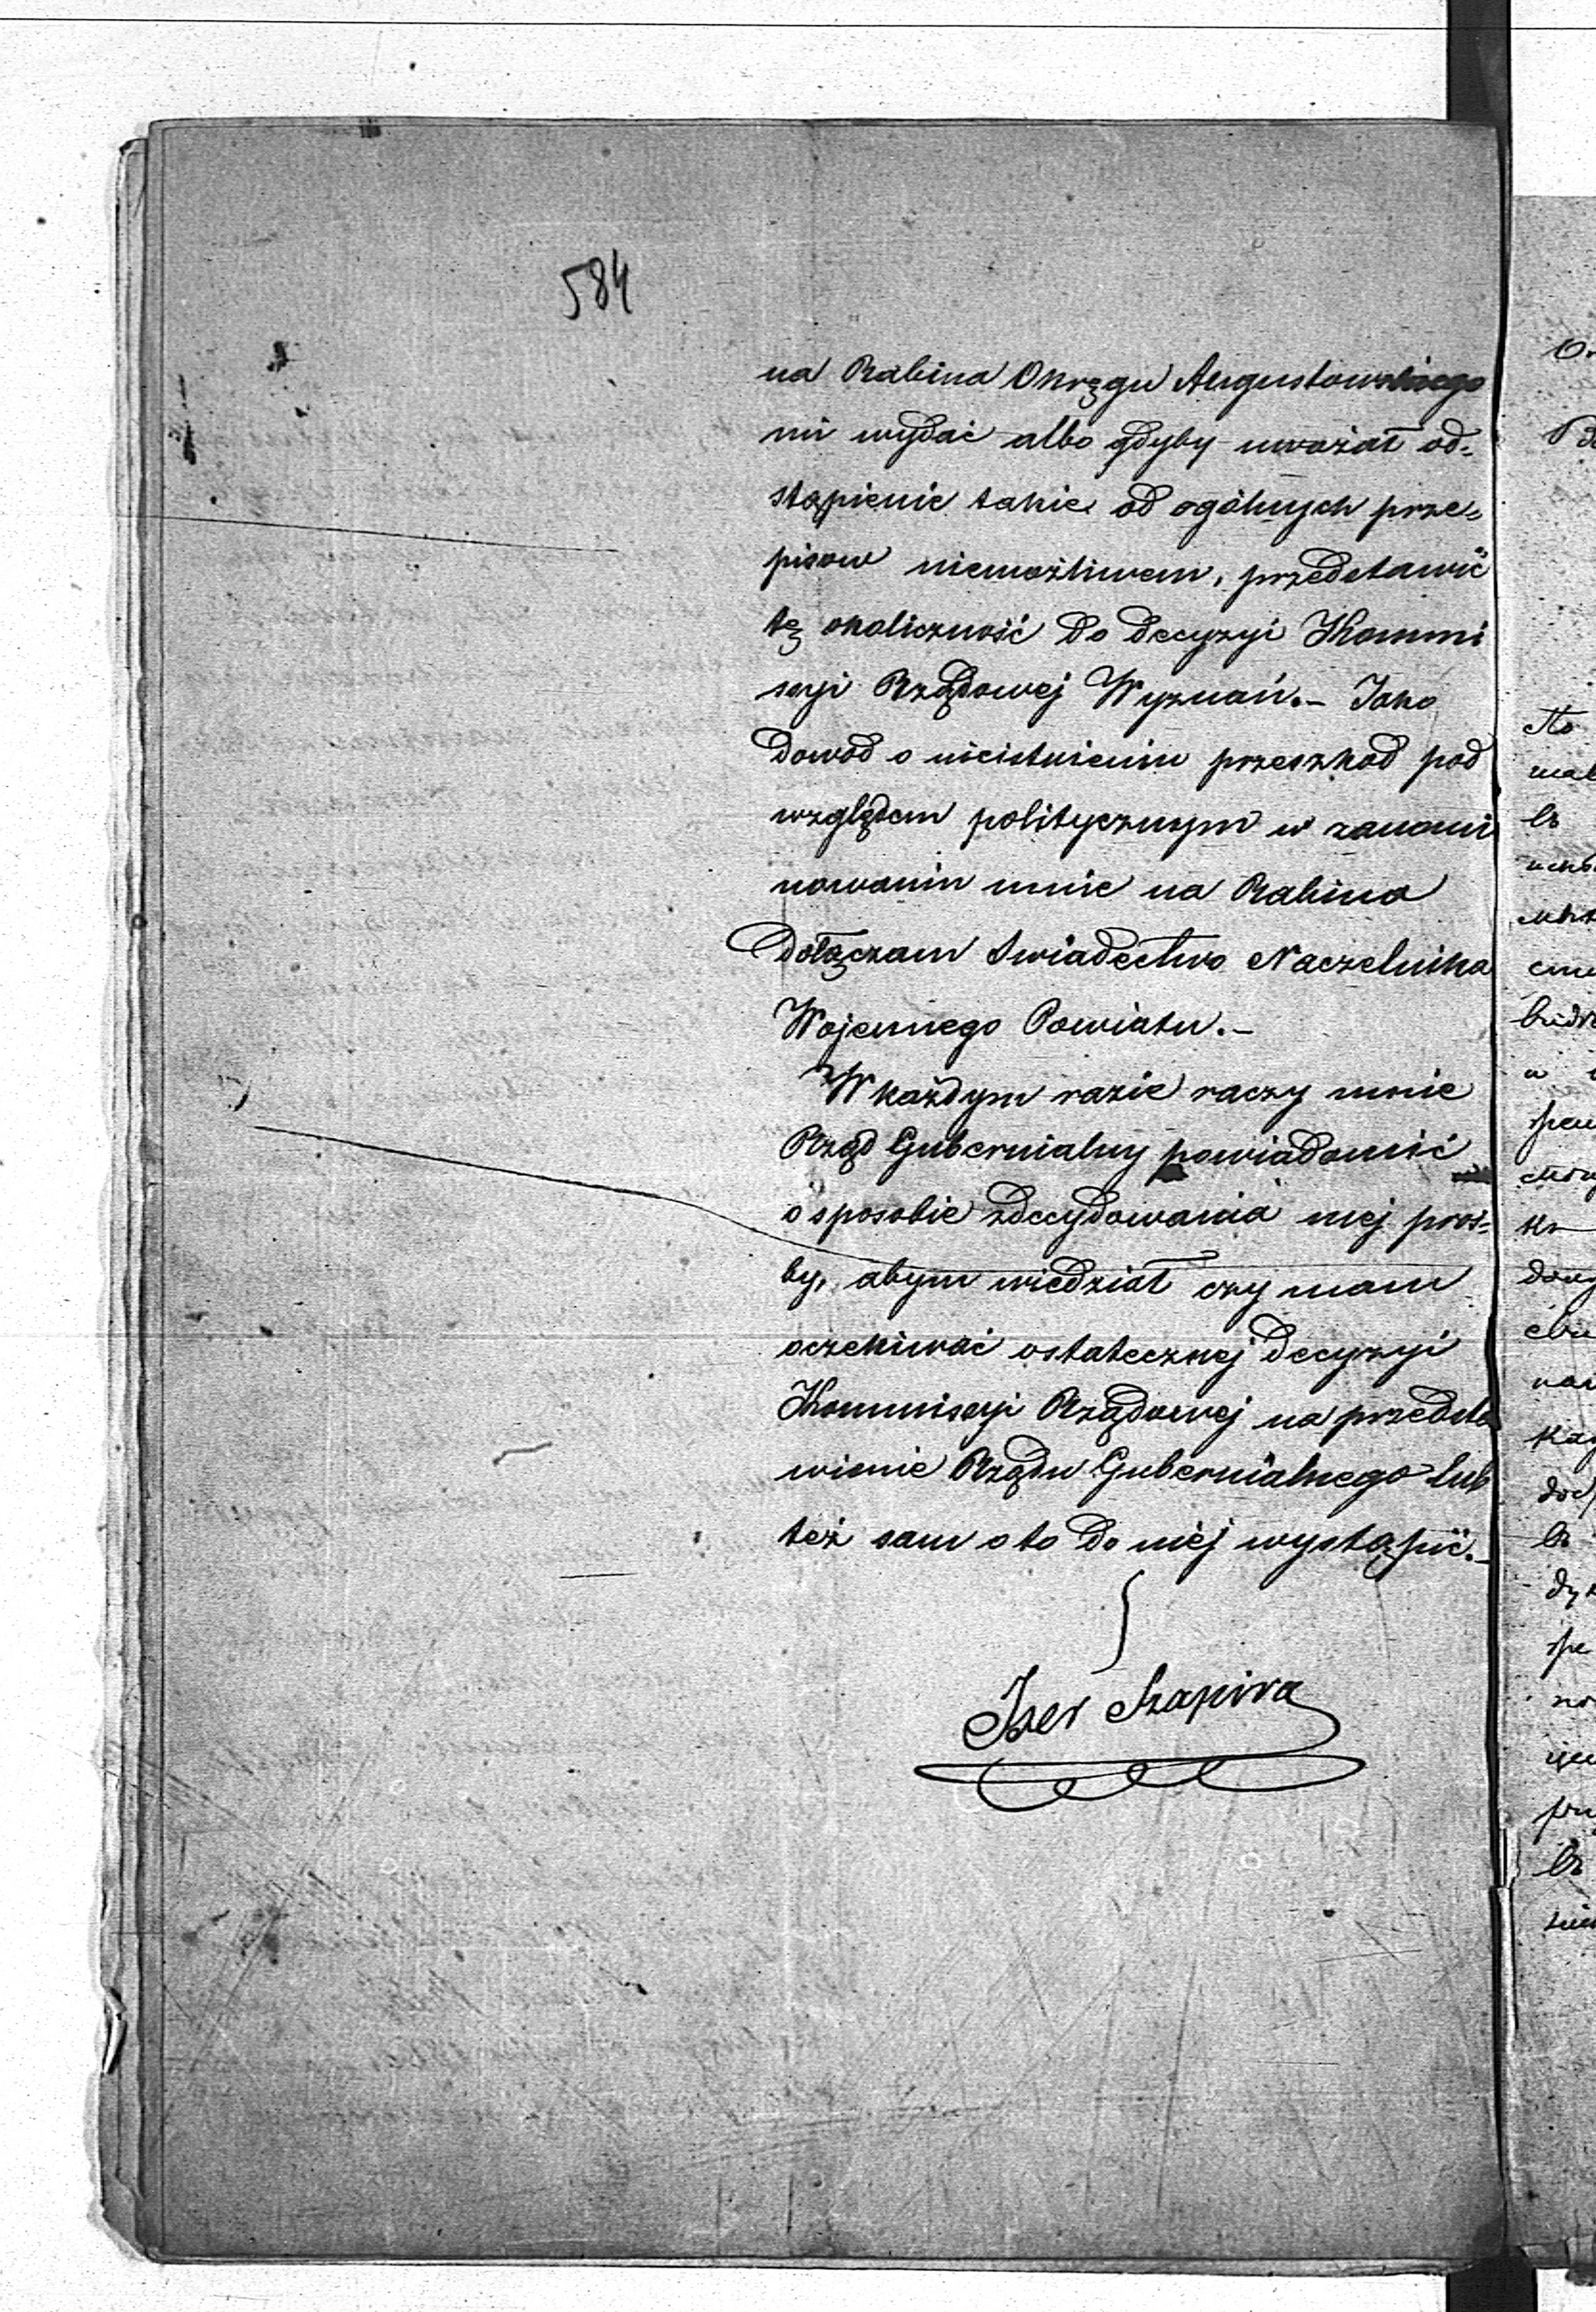 584
na Rabina Okręgu Augustowskiego
mi wydać albo gdyby uważał od=
stąpienie takie od ogólnych prze=
pisow niemożliwem, przedstawić
tę okoliczność do decyzyi Kommi
ssyi Rządowej Wyznań.– Jako
dowod o nieistnieniu przeszkod pod
względem politycznym w zanomi
nowaniu mnie na Rabina
dołączam Swiadectwo Naczelnika
Wojennego Powiatu.–
W każdym razie raczy mnie
Rząd Gubernialny powiadomić
o sposobie zdecydowania mej proś=
by, abym wiedział czy mam
oczekiwać ostatecznej decyzyi
Kommissyi Rządowej na przedsta
wienie Rządu Gubernialnego lub
też sam o to do niej wystąpić.–
Iser Szapira